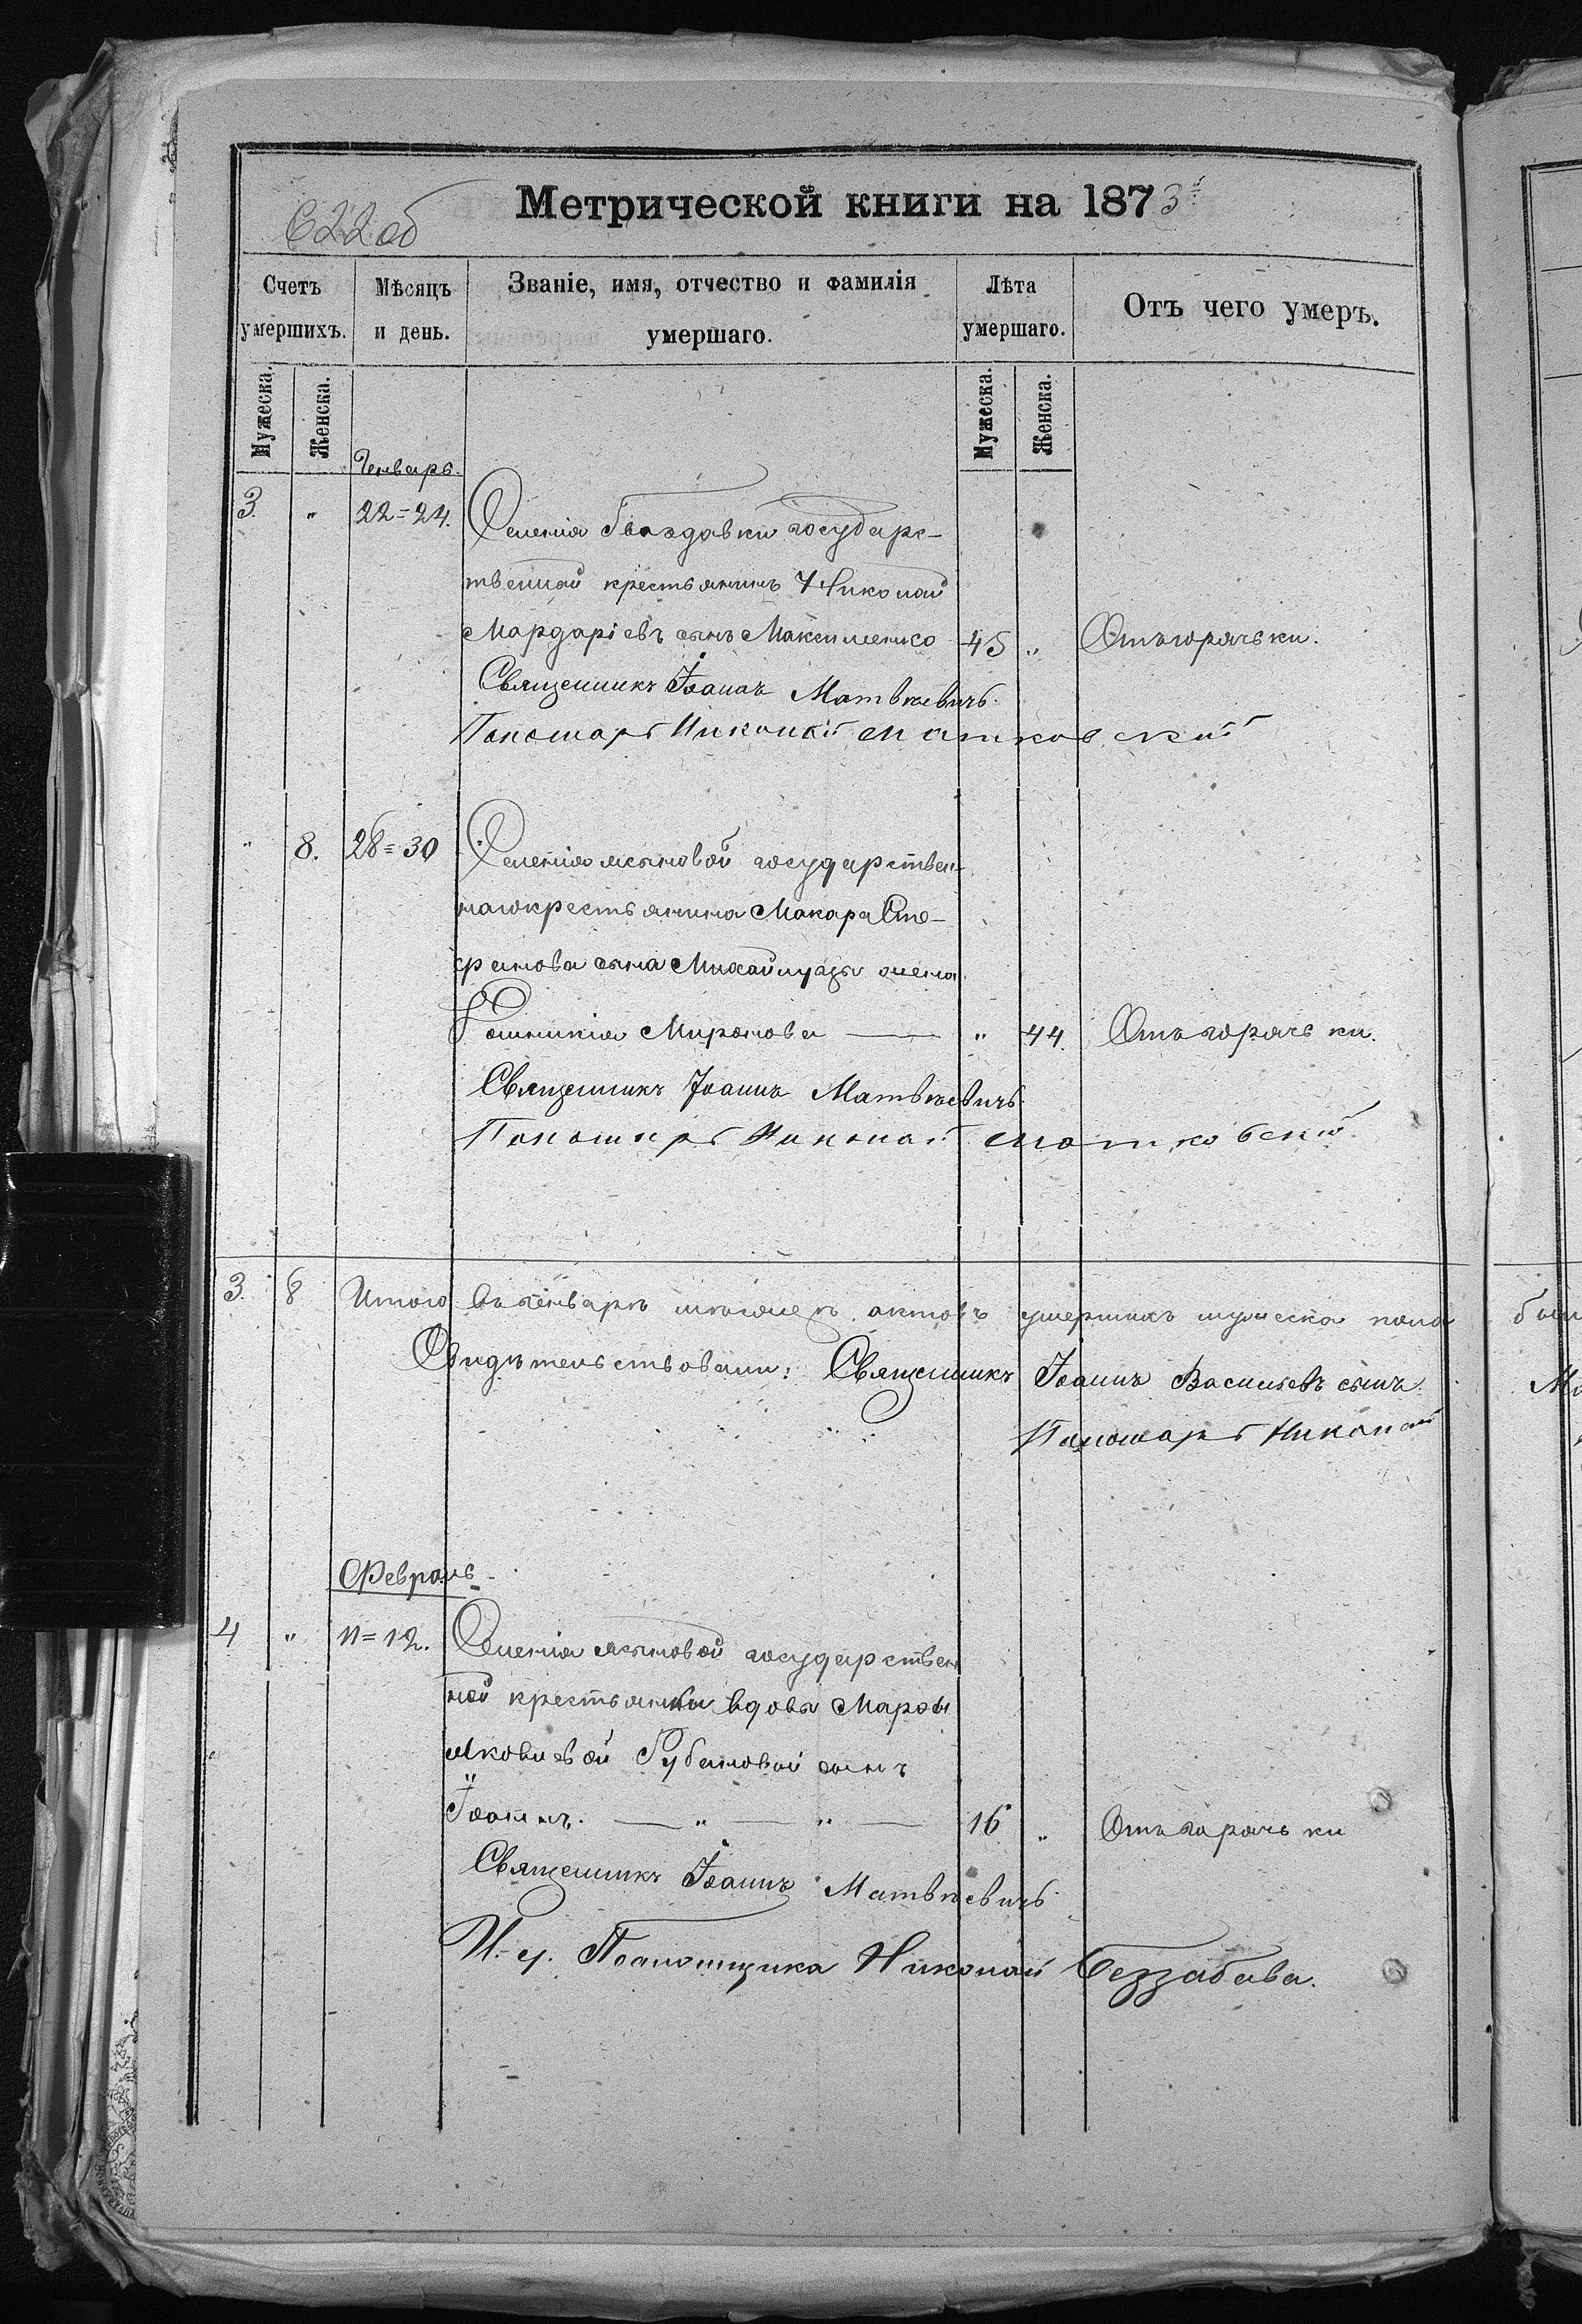 622 об
Метрической книги на 1873
Счетъ умершихъ.
Мѣсяцъ и день.
Званіе, имя, отчество и фамилія умершаго.
Лѣта умершаго.
Отъ чего умеръ.
Мужеска.
Женска.
Мужеска.
Женска.
Генварь.
3. " 22=24. Селенія Гвоздавки государс-
твенной крестьянинъ Николай
Мардаріевъ сынъ Максименко 45 " Отъ горячьки.
Священникъ Іоаннъ Матвѣевичъ
Пономарь Николай Матковскій
" 8. 28=30 Селенія Ясыновой государствен-
наго крестьянина Макара Сте-
фанова сына Михайлуцы жена
Гликикія Миронова — " 44. Отъ горячьки.
Священникъ Іоаннъ Матвѣевичъ
Пономарь Николай Матковскій
3. 8 Итого въ Генварѣ мѣсяцѣ актовъ умершихъ мужеска пола
Свидѣтельствовали: Священникъ Іоаннъ Васильевъ сынъ
Пономарь Николай
Февраль
4 " 11=12. Селенія Ясыновой государствен
ной крестьянки вдовы Марѳы
Яковлевой Рубановой сынъ
Іоаннъ. — " — " — 16 " Отъ горячьки
Священникъ Іоаннъ Матвѣевичъ
И. д. Псаломщика Николай Беззабава.